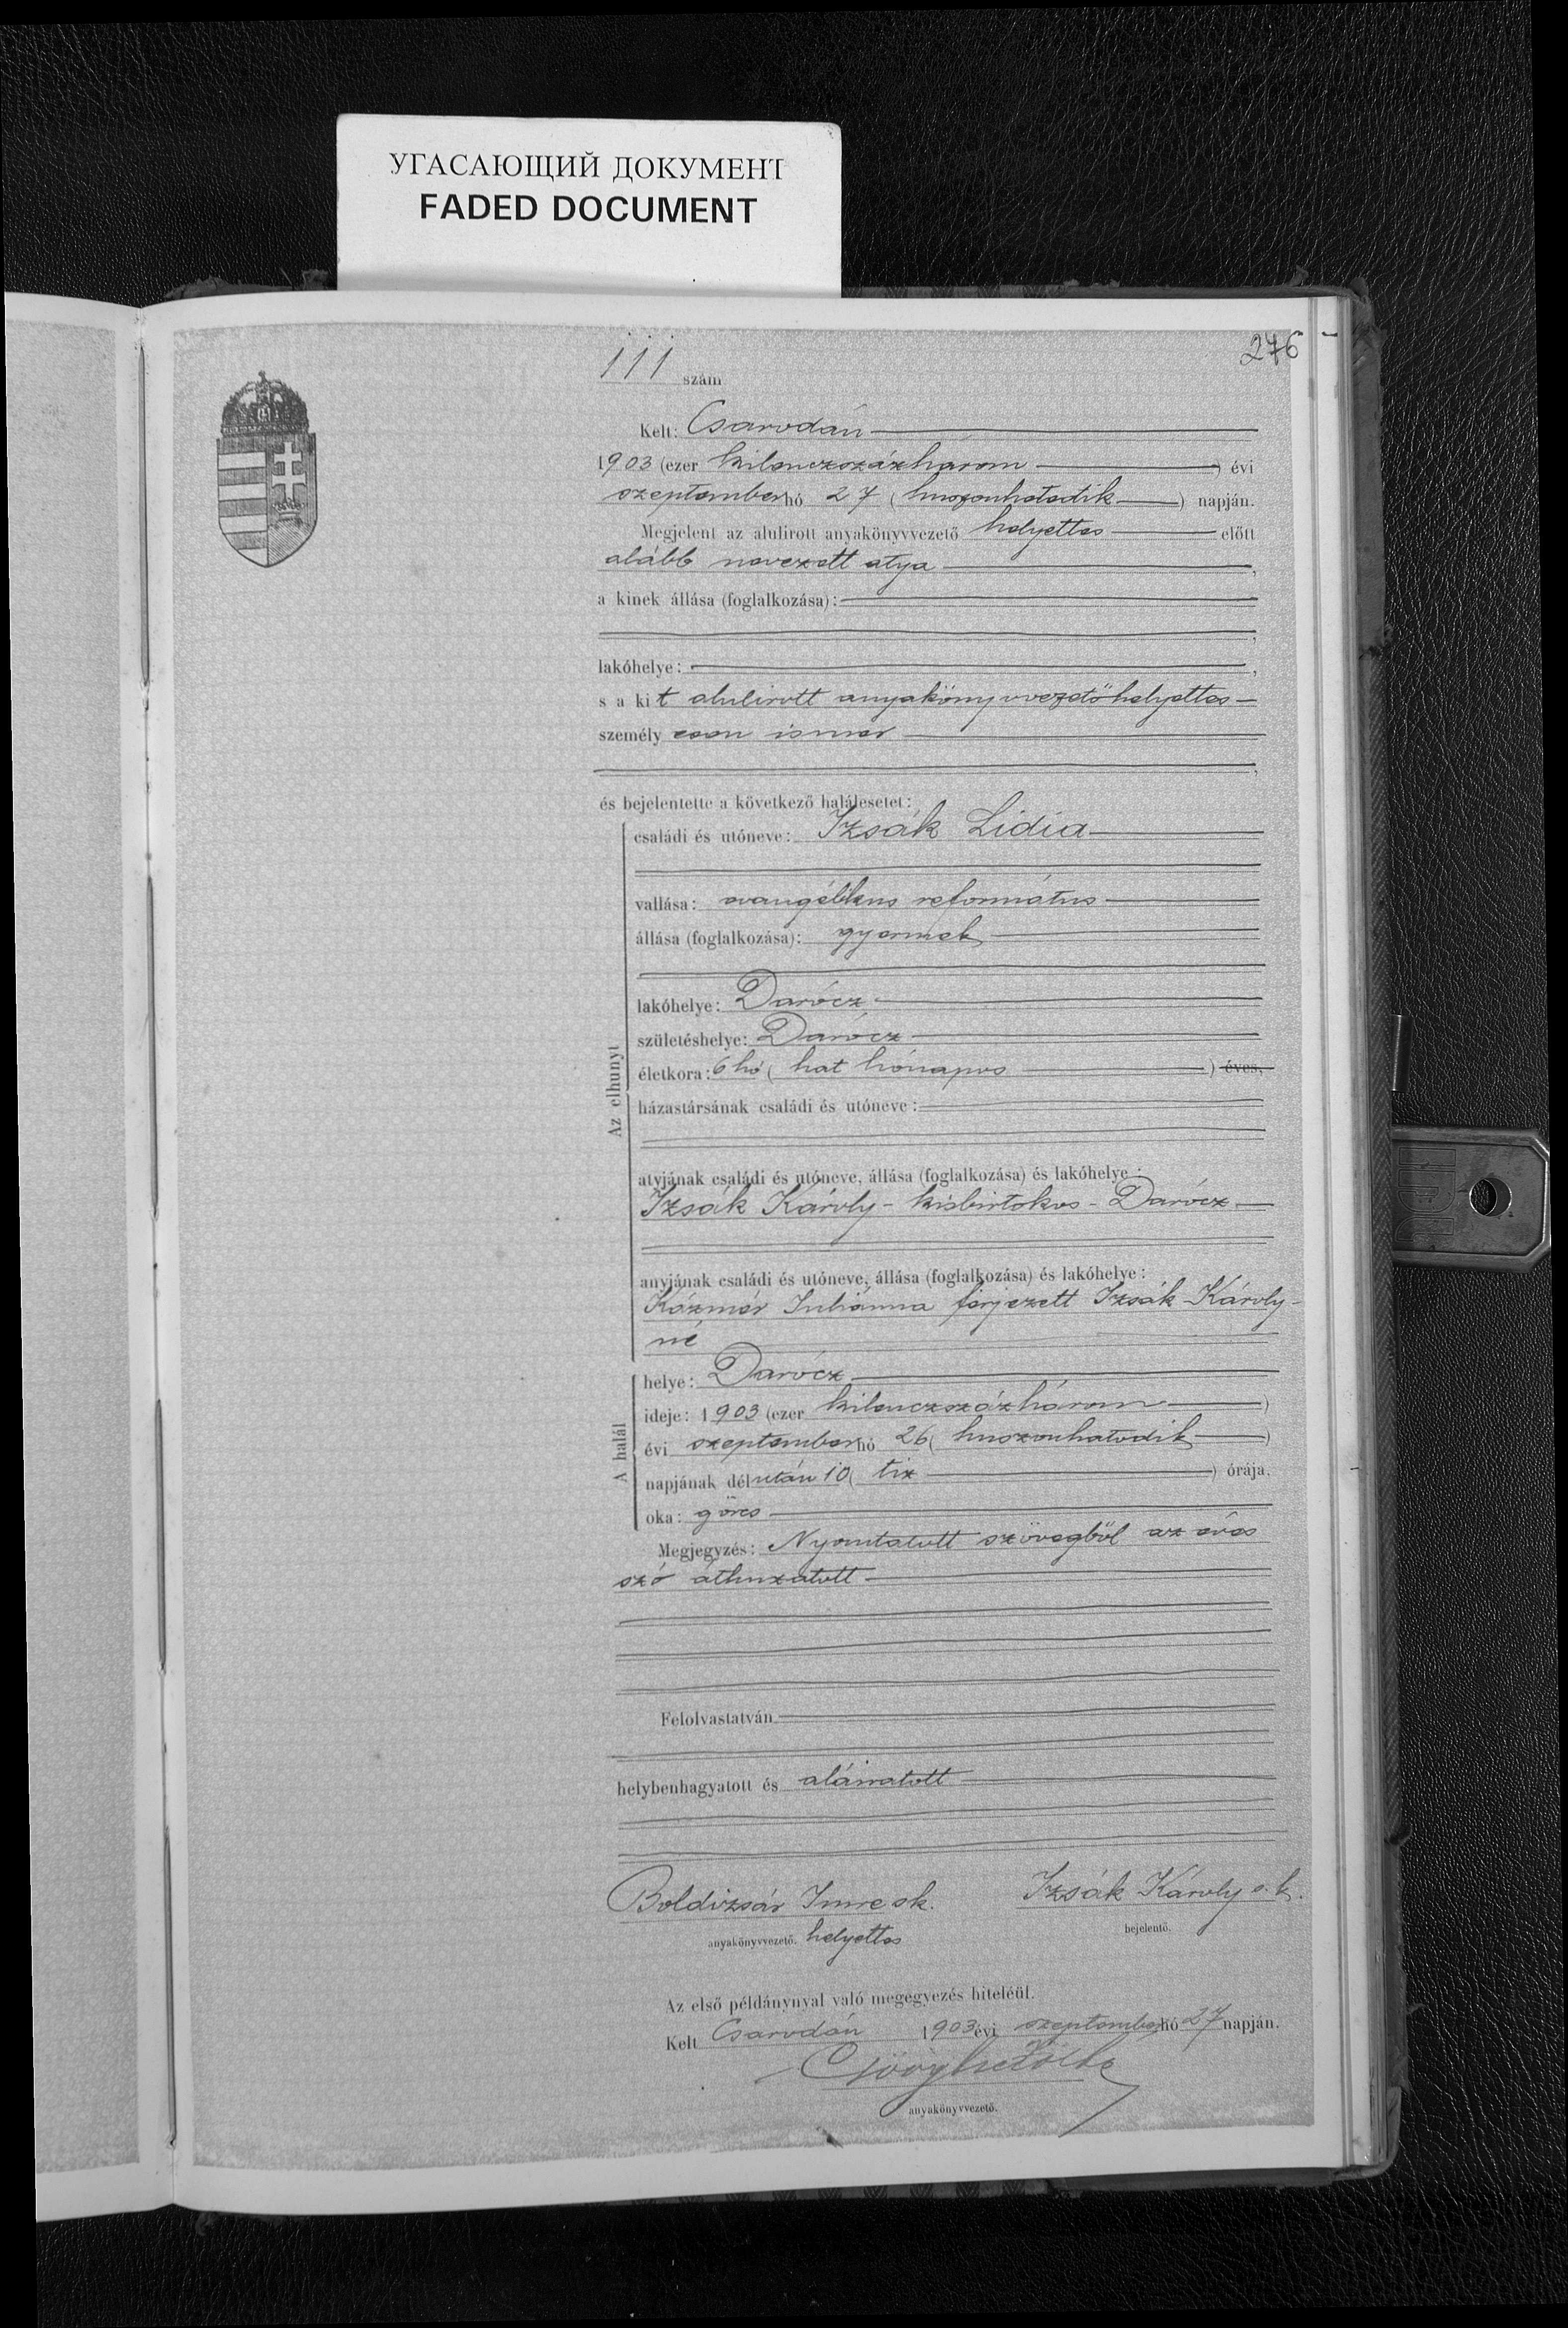 УГАСАЮЩИЙ ДОКУМЕНТ
FADED DOCUMENT
276
111 szám
Kelt: Csarodán
1903 (ezer kilenczszázhárom) évi
szeptember hó 27 (huszonhatodik) napján.
Megjelent az alulirott anyakönyvvezető helyettes előtt
alább nevezett atya,
a kinek állása (foglalkozása):
lakóhelye:
s a kit alulirott anyakönyvvezető helyettes
személyesen ismer
és bejelentette a következő halálesetet:
Az elhunyt
családi és utóneve: Izsák Lidia
vallása: evangélikus református
állása (foglalkozása): gyermek
lakóhelye: Darócz
születéshelye: Darócz
életkora: 6 hó (hat hónapos) éves,
házastársának családi és utóneve:
atyjának családi és utóneve, állása (foglalkozása) és lakóhelye:
Izsák Károly - kisbirtokos - Darócz
anyjának családi és utóneve, állása (foglalkozása) és lakóhelye:
Kázmér Juliánna férjezett Izsák Károly-
né
A halál
helye: Darócz
ideje: 1903 (ezer kilenczszázhárom)
évi szeptember hó 26 (huszonhatodik)
napjának délután 10 (tiz) órája.
oka: görcs
Megjegyzés: Nyomtatott szövegből az éves
szó áthuzatott
Felolvastatván
helybenhagyatott és aláiratott
Boldizsár Imre sk. Izsák Károly s. k.
anyakönyvvezető. helyettes bejelentő.
Az első példánynyal való megegyezés hiteléül.
Kelt Csarodán 1903 évi szeptember hó 27 napján.
anyakönyvvezető.